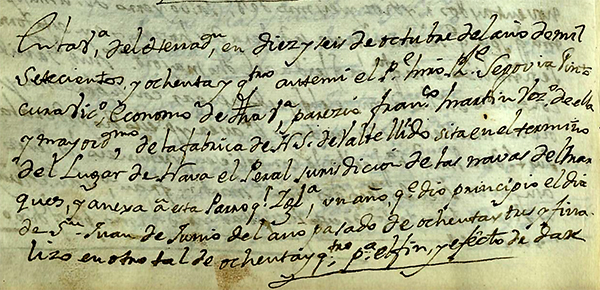 En la V.ª del Henar, en diez y seis de octubre del año de mil
setecientos, y ochenta y q.tro antemi el P.e Segovia
cura Vic.o, Economo de dha V.ª, parezio fran.co Martin Vez.o de ella
y mayord.mo de la fabrica de N. S. de Valtellido sita en el termino
del Lugar de Nava el Peral Jurisdicion de las navas del mar
ques, y anexa a esta Parroq.l Igl.ª, un año, q.e dio principio el dia
de S.n Juan de Junio del año pasado de ochenta y tres y fina
lizo en otro tal de ochenta y q.tro p.ª el fin, y efecto de dar